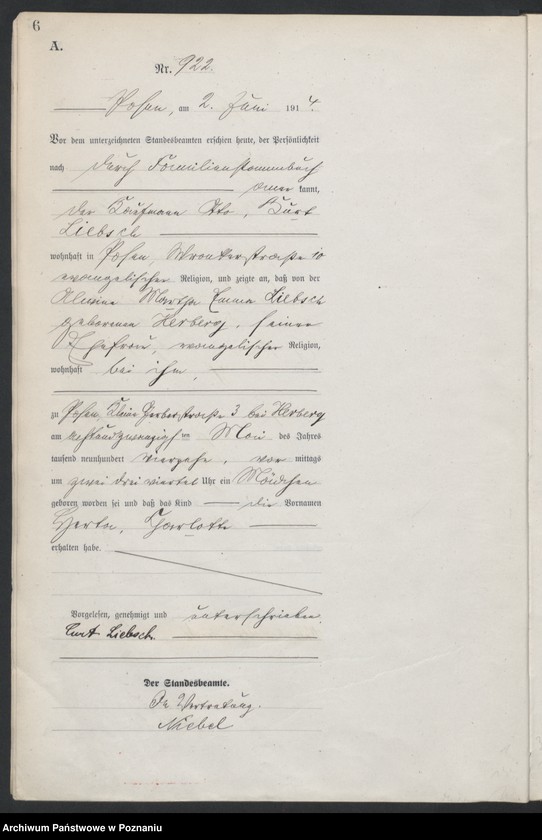 6
A.
Nr. 922.
Posen, am 2. Juni 1914.
Vor dem unterzeichneten Standesbeamten erschien heute, der Persönlichkeit
nach durch Familienstammbuch
aner kannt,
der Kaufmann Otto, Kurt
Liebsch
wohnhaft in Posen, Wronkerstraße 10
evangelischer Religion, und zeigte an, daß von der
Alwine Martha Emma Liebsch
geborenen Herberg, seiner
Ehefrau, evangelischer Religion,
wohnhaft bei ihm,
zu Posen, Kleine Gerberstraße 3 bei Herberg
am ten Mai des Jahres
tausend neunhundert vierzehn, vor mittags
um zwei drei viertel Uhr ein Mädchen
geboren worden sei und daß das Kind die Vornamen
Herta, Charlotte
erhalten habe.
Vorgelesen, genehmigt und unterschrieben.
Curt Liebsch.
Der Standesbeamte.
In Vertretung.
Niebel
Archiwum Państwowe w Poznaniu